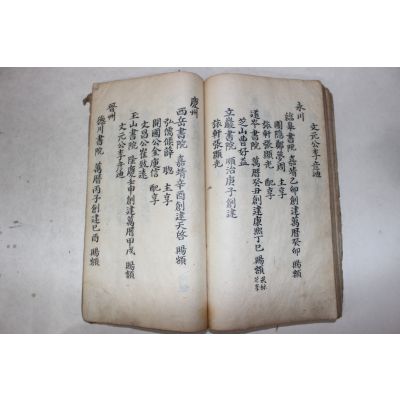 文元公李彦迪
永川
臨皐書院 嘉靖乙卯創建萬曆癸卯 賜額
圃隱鄭夢周 主享
旅軒張顯光 配享
道岑書院 萬曆癸丑創建康熙丁巳 賜額
芝山曺好益
立巖書院 順治庚子創建
旅軒張顯光
慶州
西岳書院 嘉靖辛酉創建天啓 賜額
弘儒侯薛聰 主享
開國公金庾信 配享
文昌公崔致遠
玉山書院 隆慶壬申創建萬曆甲戌 賜額
文元公李彦迪
晉州
德川書院 萬曆丙子創建己酉 賜額